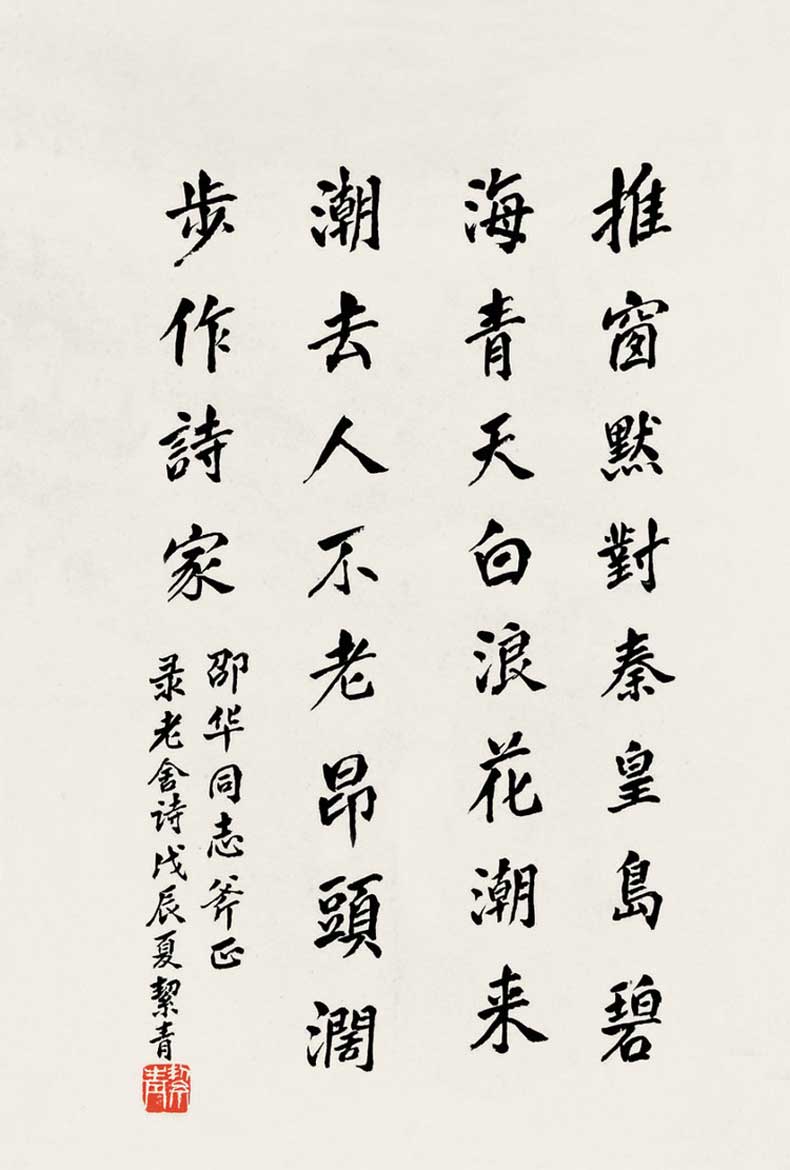 推窗默對秦皇島碧
海青天白浪花潮来
潮去人不老昂頭濶
步作詩家
邵华同志斧正
录老舍诗戊辰夏絜青
絜青